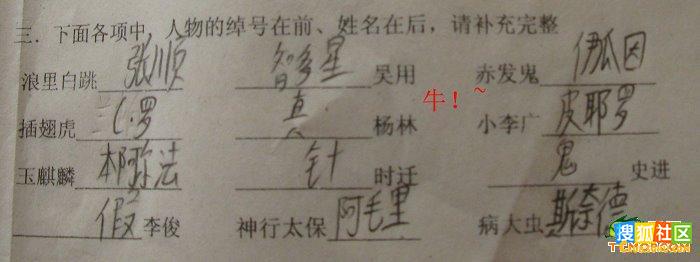 三．下面各项中，人物的绰号在前、姓名在后，请补充完整
浪里白跳 张顺 智多星 吴用 赤发鬼 伊瓜因
牛！~
插翅虎 C.罗 真 杨林 小李广 皮耶罗
玉麒麟 本弥法 针 时迁 鬼 史进
假 李俊 神行太保 阿毛里 病大虫 斯奈德
搜狐社区